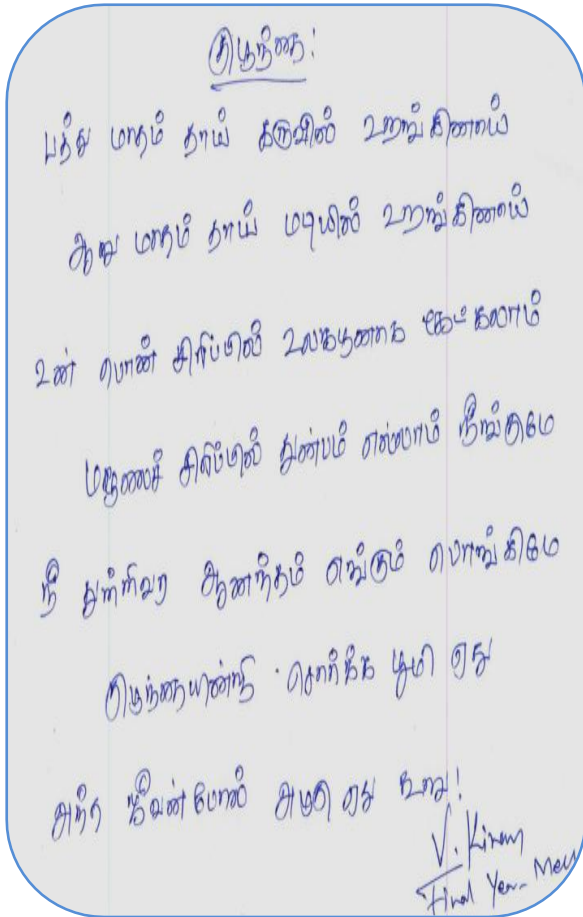 குழந்தை!
பத்து மாதம் தாய் கருவில் உறங்கினாய்
ஆறு மாதம் தாய் மடியில் உறங்கினாய்
உன் பொன் சிரிப்பில் கேட்கலாம்
சிரிப்பில் துன்பம் எல்லாம் நீங்குமே
நீ துள்ளிவர ஆனந்தம் எங்கும் பொங்கிமே
குழந்தையன்றி சொர்க்க பூமி ஏது
அந்த ஜீவன் போல் அழகு ஏது கூறு!
V. Kiran
Final Year - Mech